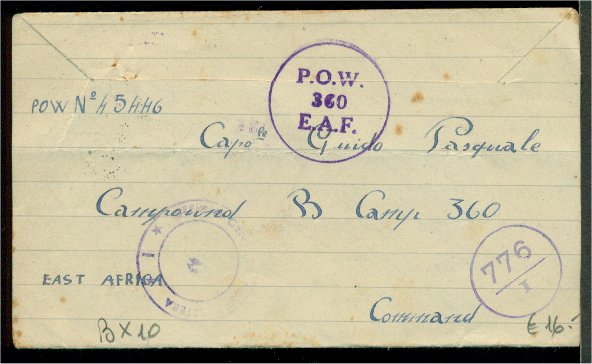 P.O.W.
360
E.A.F.
POW Nº 45446
Capo.le Guido Pasquale
Campound B Camp 360
776
I
I
EAST AFRICA
Command
B X 10
£ 16.-